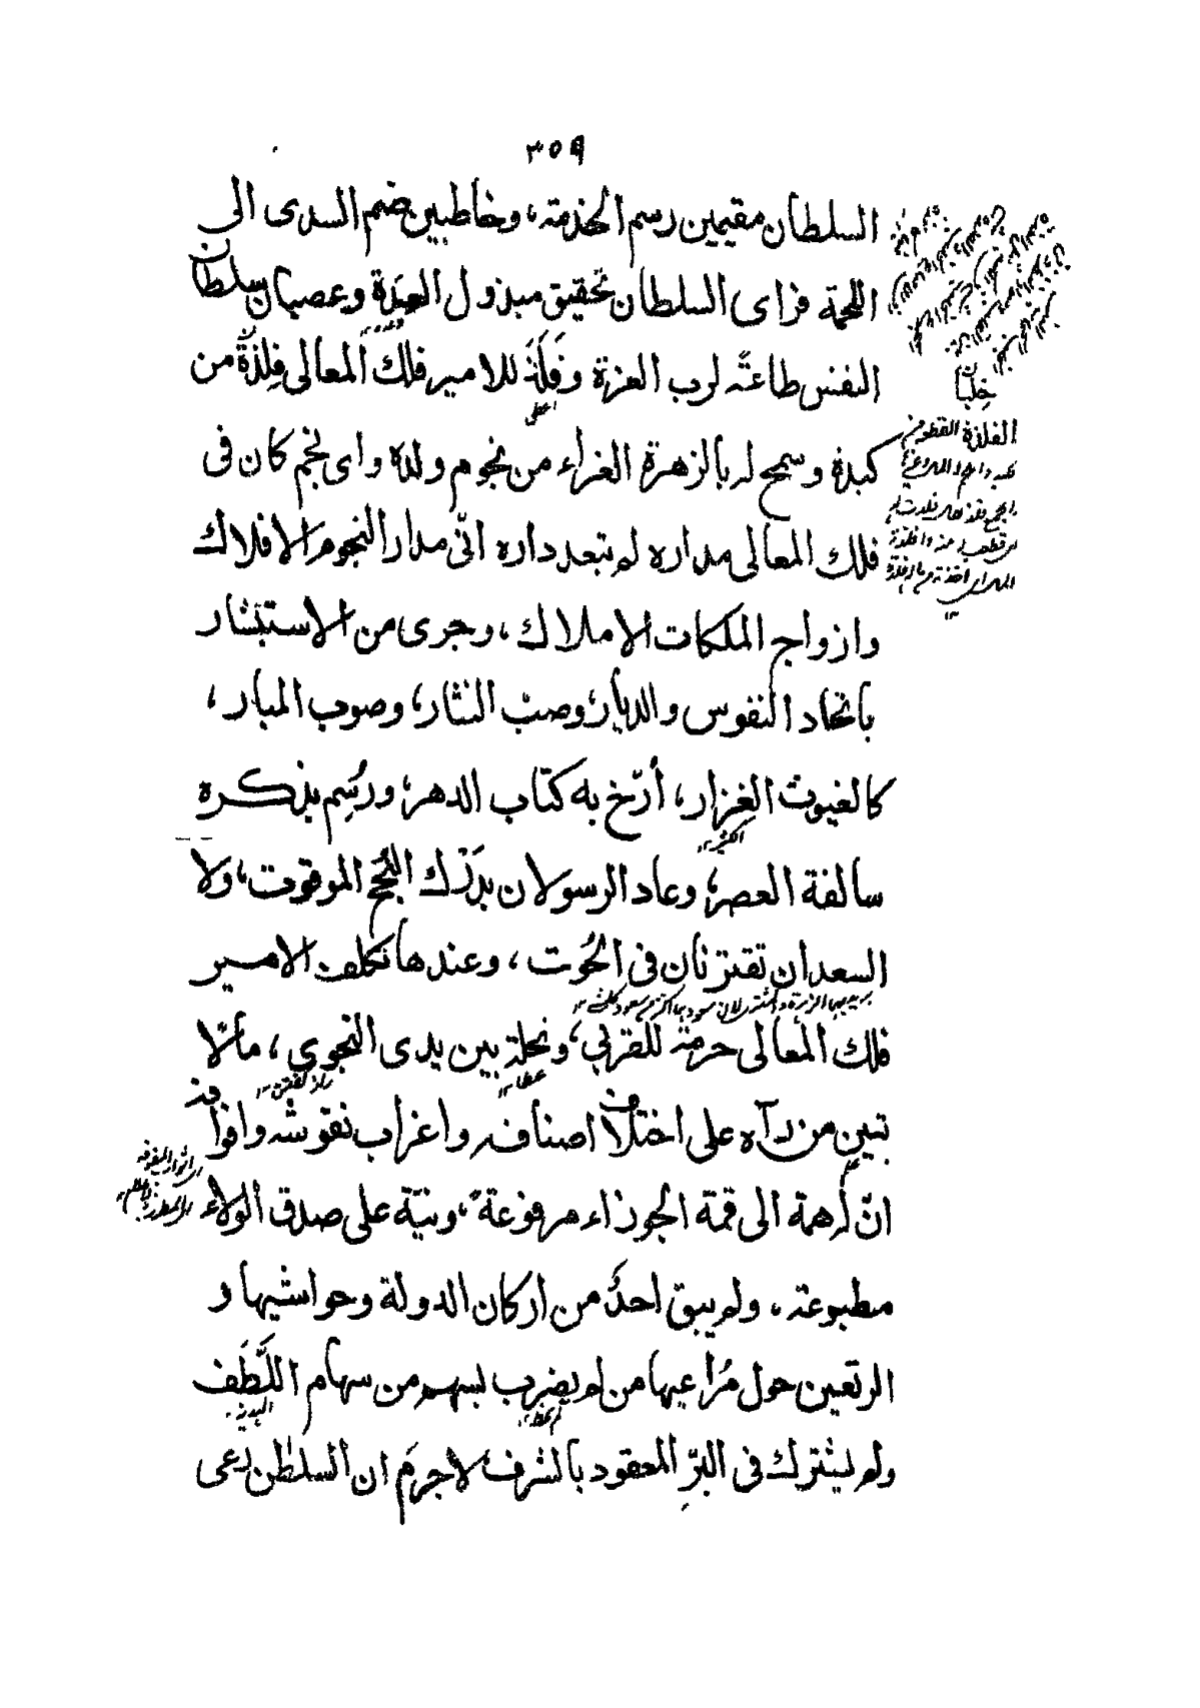 ٣٥٩
السلطان مقيمين رسم الخدمة، وخاطبين ضم السدى الى
اللحمة فراى السلطان تحقيق مبذول العدة وعصيان سلطان
النفس طاعة لرب العزة وفلذ للامير فلك المعالى فلذة من
كبده وسمح له بالزهرة الغراء من نجوم ولده واى نجم كان فى
فلك المعالى مداره لم تبعد داره انّى مدار النجوم الافلاك
وازواج الملكات الاملاك، وجرى من الاستبشار
باتحاد النفوس والديار، وصبّ النثار، وصوب المبار،
كالغيوث الغزار، أرّخ به كتاب الدهر، ورُسِم بذكره
سالفة العصر، وعاد الرسولان بدَرْك النُجح الموقوت، ولا
السعدان تقترنان فى الحُوت، وعندها تكلف الامير
فلك المعالى حرمة للقربى، ونحلة بين يدى النجوى، مالًا
تبين من رآه على اختلاف اصنافه واغراب نقوشه وافوافه
انّ له همة الى قمة الجوزاء مرفوعة، ونيّة على صدق الولاء
مطبوعة، ولم يبق احدٌ من اركان الدولة وحواشيها و
الرتعين حول مُراعيها من لم يضرب بسهم من سهام اللَّطَف
ولم يشترك فى البرّ المعقود بالشرف لا جرم ان السلطن رعى
خِلْبًا
الفلذة القطعة من
اعطى
عطاء
الهدية